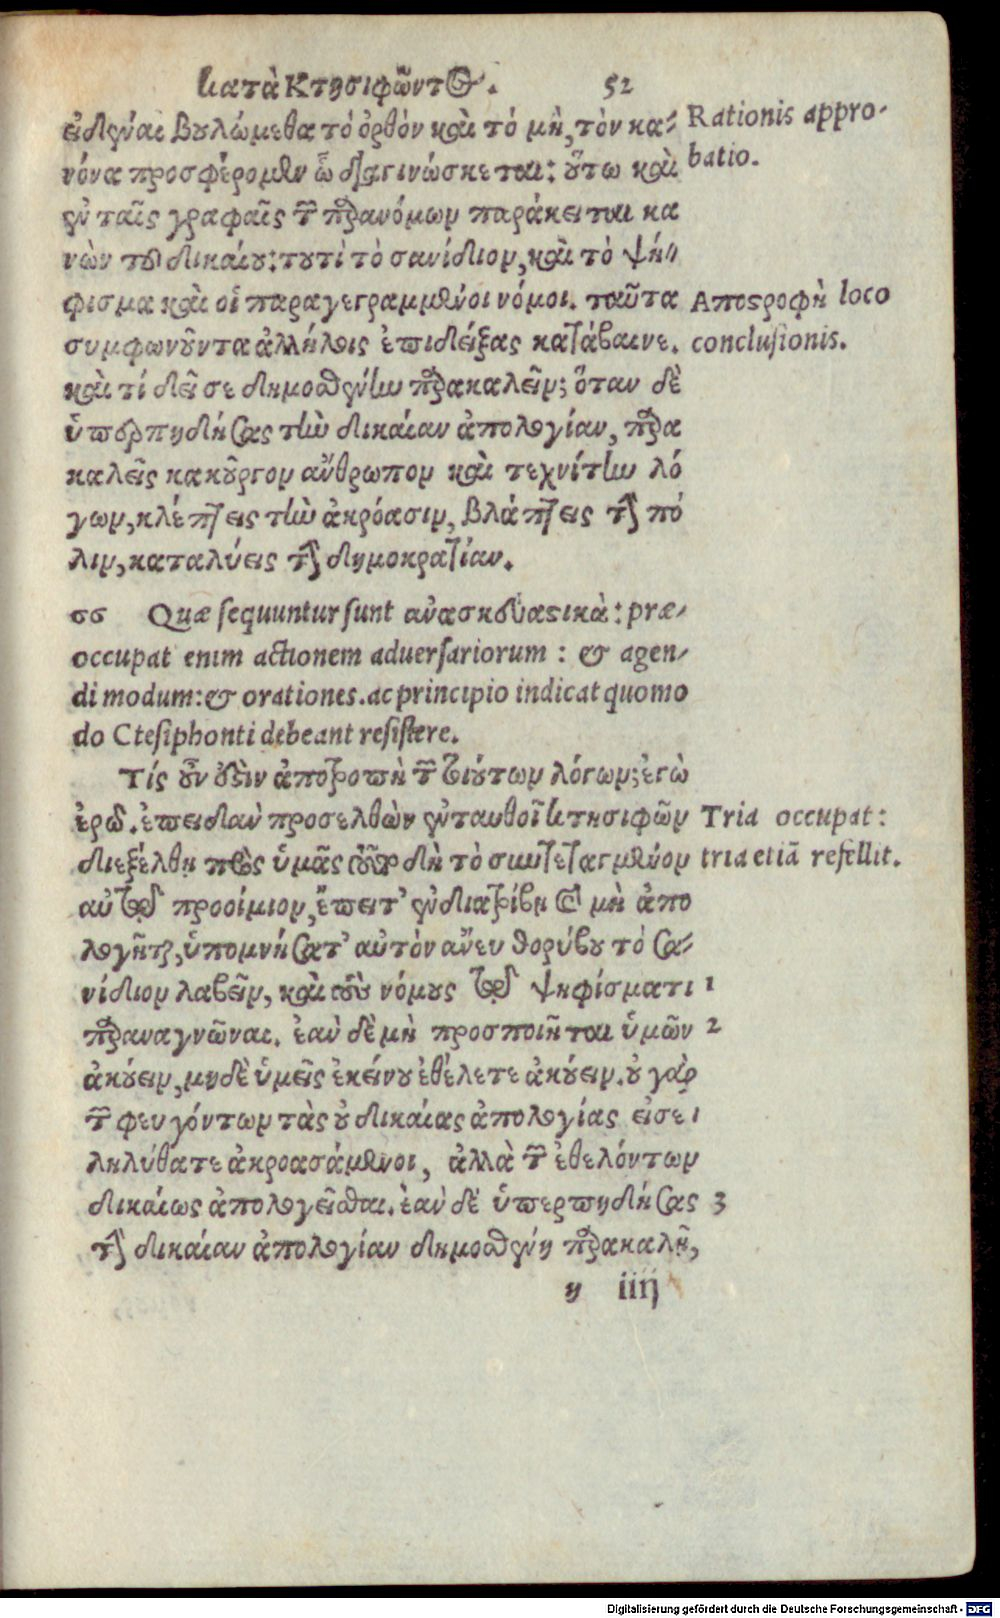 κατὰ Κτησιφῶντος. 52
εἰδέναι βουλώμεθα τὸ ὀρθόν καὶ τὸ μὴ, τὸν κα-
νόνα προσφέρομεν ὧ διαγινώσκεται: οὕτω καὶ
ἐν ταῖς γραφαῖς τῶν παρανόμων παράκειται κα
νὼν τοῦ δικαίου: τουτὶ τὸ σανίδιον, καὶ τὸ ψή-
φισμα καὶ οἱ παραγεγραμμένοι νόμοι. ταῦτα
συμφωνοῦντα ἀλλήλοις ἐπιδείξας κατάβαινε.
καὶ τί δεῖ σε δημοσθένην παρακαλεῖν; ὅταν δὲ
ὑπερπηδήσας τὴν δικαίαν ἀπολογίαν, παρα
καλεῖς κακοῦργον ἄνθρωπον καὶ τεχνίτην λό
γων, κλέπτεις τὴν ἀκρόασιν, βλάπτεις τὴν πό
λιν, καταλύεις τὴν δημοκρατίαν.
σσ Quæ sequuntur sunt ἀνασκευαστικὰ: præ-
occupat enim actionem aduersariorum: & agen-
di modum: & orationes. ac principio indicat quomo
do Ctesiphonti debeant resistere.
Τίς οὖν ἐστὶν ἀποτροπὴ τῶν τοιούτων λόγων; ἐγὼ
ἐρῶ. ἐπειδὰν προσελθὼν ἐνταυθοῖ κτησιφῶν
διεξέλθη πρὸς ὑμᾶς τοῦτο δὴ τὸ συντεταγμένον
αὐτῷ προοίμιον, ἔπειτ' ἐνδιατρίβη καὶ μὴ ἀπο
λογῆται, ὑπομνήσατ' αὐτὸν ἄνευ θορύβου τὸ σα-
νίδιον λαβεῖν, καὶ τοὺς νόμους τῷ ψηφίσματι 1
παραναγνῶναι. ἐὰν δὲ μὴ προσποιῆται ὑμῶν 2
ἀκούειν, μηδὲ ὑμεῖς ἐκείνου ἐθέλετε ἀκούειν. οὐ γὰρ
τῶν φευγόντων τὰς οὐ δικαίας ἀπολογίας εἰσε
ληλύθατε ἀκροασάμενοι, ἀλλὰ τῶν ἐθελόντων
δικαίως ἀπολογεῖσθαι. ἐὰν δὲ ὑπερπηδήσας 3
τὴν δικαίαν ἀπολογίαν δημοσθένη παρακαλῆ,
η iiij
Rationis appro-
batio.
Αποστροφὴ loco
conclusionis.
Tria occupat:
tria etiā refellit.
Digitalisierung gefördert durch die Deutsche Forschungsgemeinschaft - DFG